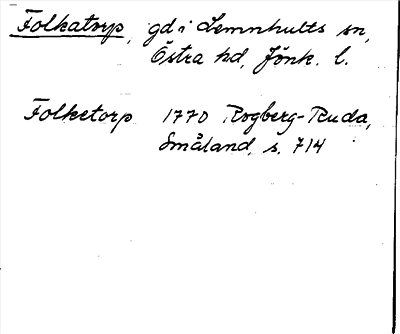 Folkatorp, gd i Lemnhults sn,
Östra hd, Jönk. l.
Folketorp 1770 Rogberg-Ruda,
Småland, s. 714